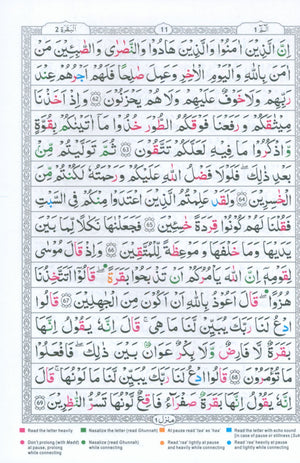 البقرة 2 11 الٓمّٓ 1
اِنَّ الَّذِيْنَ اٰمَنُوْا وَالَّذِيْنَ هَادُوْا وَالنَّصٰرٰى وَالصّٰبِـِٕيْنَ مَنْ
اٰمَنَ بِاللّٰهِ وَالْيَوْمِ الْاٰخِرِ وَعَمِلَ صَالِحًا فَلَهُمْ اَجْرُهُمْ عِنْدَ
رَبِّهِمْ وَلَا خَوْفٌ عَلَيْهِمْ وَلَا هُمْ يَحْزَنُوْنَ 62 وَاِذْ اَخَذْنَا
مِيْثَاقَكُمْ وَرَفَعْنَا فَوْقَكُمُ الطُّوْرَ خُذُوْا مَآ اٰتَيْنٰكُمْ بِقُوَّةٍ
وَّاذْكُرُوْا مَا فِيْهِ لَعَلَّكُمْ تَتَّقُوْنَ 63 ثُمَّ تَوَلَّيْتُمْ مِّنْۢ
بَعْدِ ذٰلِكَ فَلَوْلَا فَضْلُ اللّٰهِ عَلَيْكُمْ وَرَحْمَتُهٗ لَكُنْتُمْ مِّنَ
الْخٰسِرِيْنَ 64 وَلَقَدْ عَلِمْتُمُ الَّذِيْنَ اعْتَدَوْا مِنْكُمْ فِى السَّبْتِ
فَقُلْنَا لَهُمْ كُوْنُوْا قِرَدَةً خٰسِـِٕيْنَ 65 فَجَعَلْنٰهَا نَكَالًا لِّمَا بَيْنَ
يَدَيْهَا وَمَا خَلْفَهَا وَمَوْعِظَةً لِّلْمُتَّقِيْنَ 66 وَاِذْ قَالَ مُوْسٰى
لِقَوْمِهٖٓ اِنَّ اللّٰهَ يَاْمُرُكُمْ اَنْ تَذْبَحُوْا بَقَرَةً قَالُوْٓا اَتَتَّخِذُنَا
هُزُوًا قَالَ اَعُوْذُ بِاللّٰهِ اَنْ اَكُوْنَ مِنَ الْجٰهِلِيْنَ 67 قَالُوا
ادْعُ لَنَا رَبَّكَ يُبَيِّنْ لَّنَا مَا هِىَ قَالَ اِنَّهٗ يَقُوْلُ اِنَّهَا
بَقَرَةٌ لَّا فَارِضٌ وَّلَا بِكْرٌ عَوَانٌۢ بَيْنَ ذٰلِكَ فَافْعَلُوْا
مَا تُؤْمَرُوْنَ 68 قَالُوا ادْعُ لَنَا رَبَّكَ يُبَيِّنْ لَّنَا مَا لَوْنُهَا قَالَ
اِنَّهٗ يَقُوْلُ اِنَّهَا بَقَرَةٌ صَفْرَآءُ فَاقِعٌ لَّوْنُهَا تَسُرُّ النّٰظِرِيْنَ 69
منزل ١
Read the letter heavily Nasalize the letter (read Ghunnah) At pause read 'taa' as 'haa' Read the letter with echo sound (in case of pause or stillness (Sukoon))
Don't prolong (with Madd) at pause, while connecting Nasalize (read Ghunnah) while connecting Read 'raa' lightly at pause and heavily while connecting Read 'raa' heavily at pause and lightly while connecting